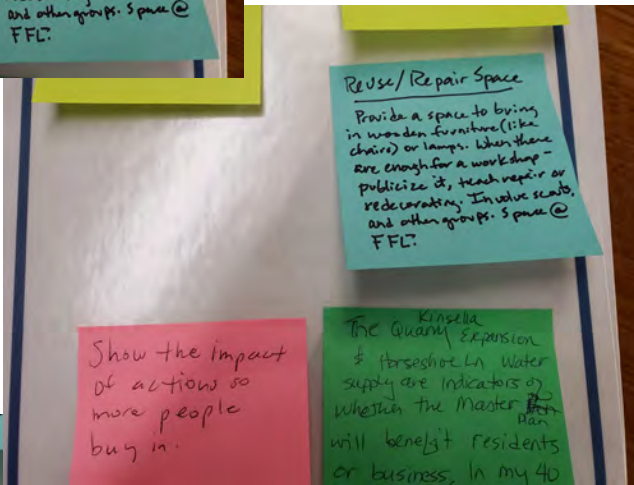 and other groups. Space @
FFL?
Reuse/Repair Space
Provide a space to bring
in wooden furniture (like
chairs) or lamps. When there
are enough for a workshop -
publicize it, teach repair or
redecorating. Involve scouts,
and other groups. Space @
FFL?
Show the impact
of actions so
more people
buy in.
Kinsella
The Quarry Expansion
& Horseshoe Ln Water
supply are indicators of
whether the Master
Plan
will benefit residents
or business. In my 40